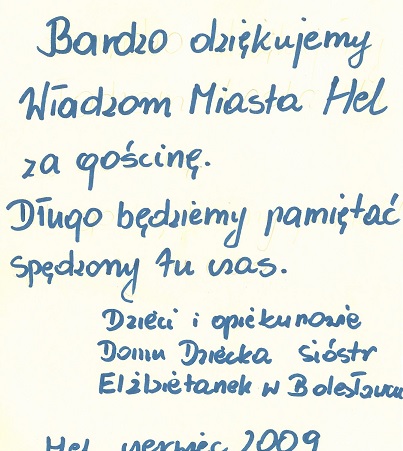 Bardzo dziękujemy
Władzom Miasta Hel
za gościnę.
Długo będziemy pamiętać
spędzony tu czas.
Dzieci i opiekunowie
Domu Dziecka sióstr
Elżbietanek w Bolesławcu
Hel, czerwiec 2009